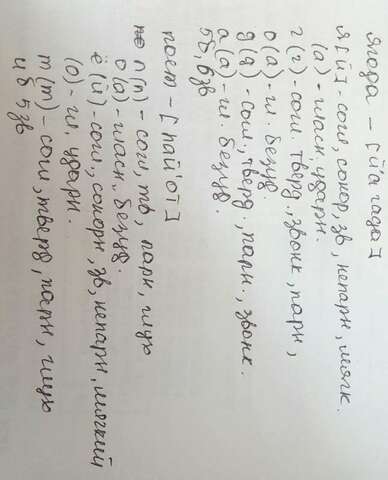 ягода – [й'агада]
я [й] - согл, сонор, зв, непарн, мягк.
(а) - гласн. ударн.
г (г) - согл. тверд., звонк, парн,
о (а) - гл. безуд
д (д) - согл, тверд., парн., звонк.
а (а) - гл. безуд.
5б, 6зв
поёт – [пай'от]
п (п) - согл, тв, парн, глух
о (а) - гласн. безуд.
ё (й) - согл, сонорн, зв, непарн, мягкий
(о) - гл. ударн.
т (т) - согл, тверд, парн, глух
4б 5зв